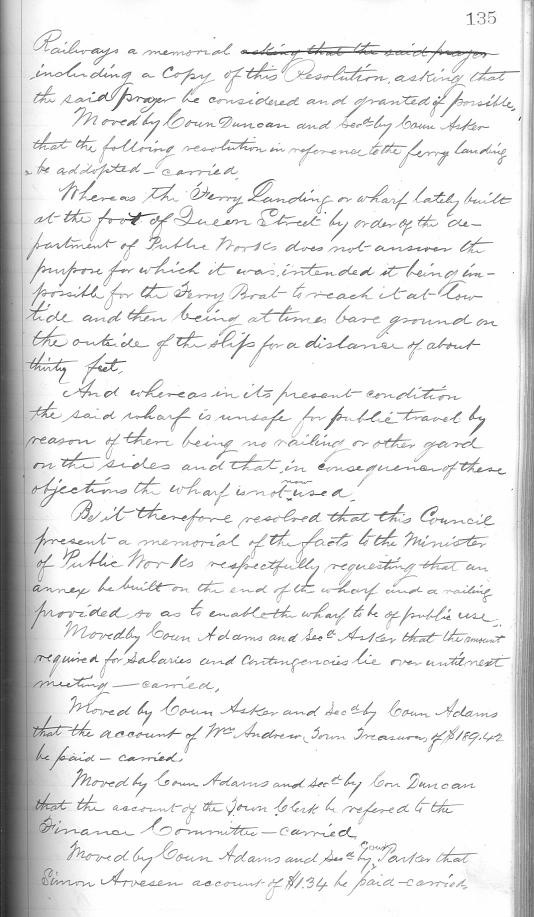 135
Railways a memorial asking that the said prayer
including a Copy of this Resolution, asking that
the said prayer be considered and granted if possible.
Moved by Coun Duncan and Secd by Coun Asker
that the folloing resolution in reference to the ferry landing
be addopted – carried
Whereas the Ferry Landing or wharf lately built
at the foot of Queen Street by order of the de-
partment of Public Works does not answer the
purpose for which it was intended it being im-
possible for the Ferry Boat to reach it at low
tide and then being at times bare ground on
the outside of the slip for a distance of about
thirty feet.
And whereas in its present condition
the said wharf is unsafe for public travel by
reason of there being no railing or other gard
on the sides and that in consequence of these
objections the wharf is not now used.
Be it therefore resolved that this Council
present a memorial of the facts to the Minister
of Public Works respectfully requesting that an
annex be built on the end of the wharf and a railing
provided so as to enable the wharf to be of public use.
Moved by Coun Adams and Secd Asker that the amount
required for Salaries and Contingencies lie over until next
meeting – carried.
Moved by Coun Asker and Secd by Coun Adams
that the account of Wm Andrew, Town Treasurer, of $189.42
be paid – carried
Moved by Coun Adams and Secd by Con Duncan
that the account of the Town Clerk be refered to the
Finance Committee – carried
Moved by Coun Adams and Secd by Coun Parker that
Simon Arvesen account of $1.34 be paid – carried